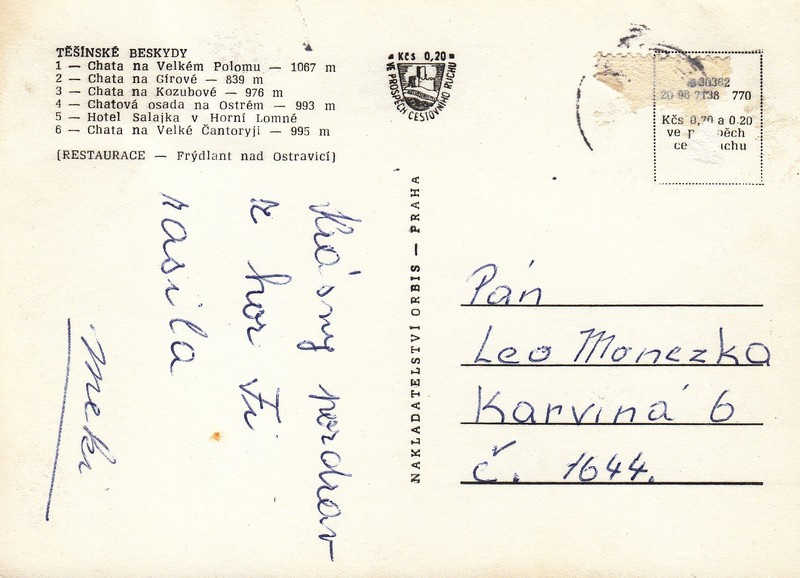 TĚŠÍNSKÉ BESKYDY
1 — Chata na Velkém Polomu — 1067 m
2 — Chata na Gírové — 839 m
3 — Chata na Kozubové — 976 m
4 — Chatová osada na Ostrém — 993 m
5 — Hotel Salajka v Horní Lomné
6 — Chata na Velké Čantoryji — 995 m
(RESTAURACE — Frýdlant nad Ostravicí)
Krásny pozdrav
z hor Ti
zasila
Meki
Kčs 0,20
VE PROSPĚCH CESTOVNÍHO RUCHU
NAKLADATELSTVÍ ORBIS — PRAHA
30362
20 96 7138 770
Kčs 0,70 a 0.20
ve
Pán
Leo Monczka
Karviná 6
č. 1644.